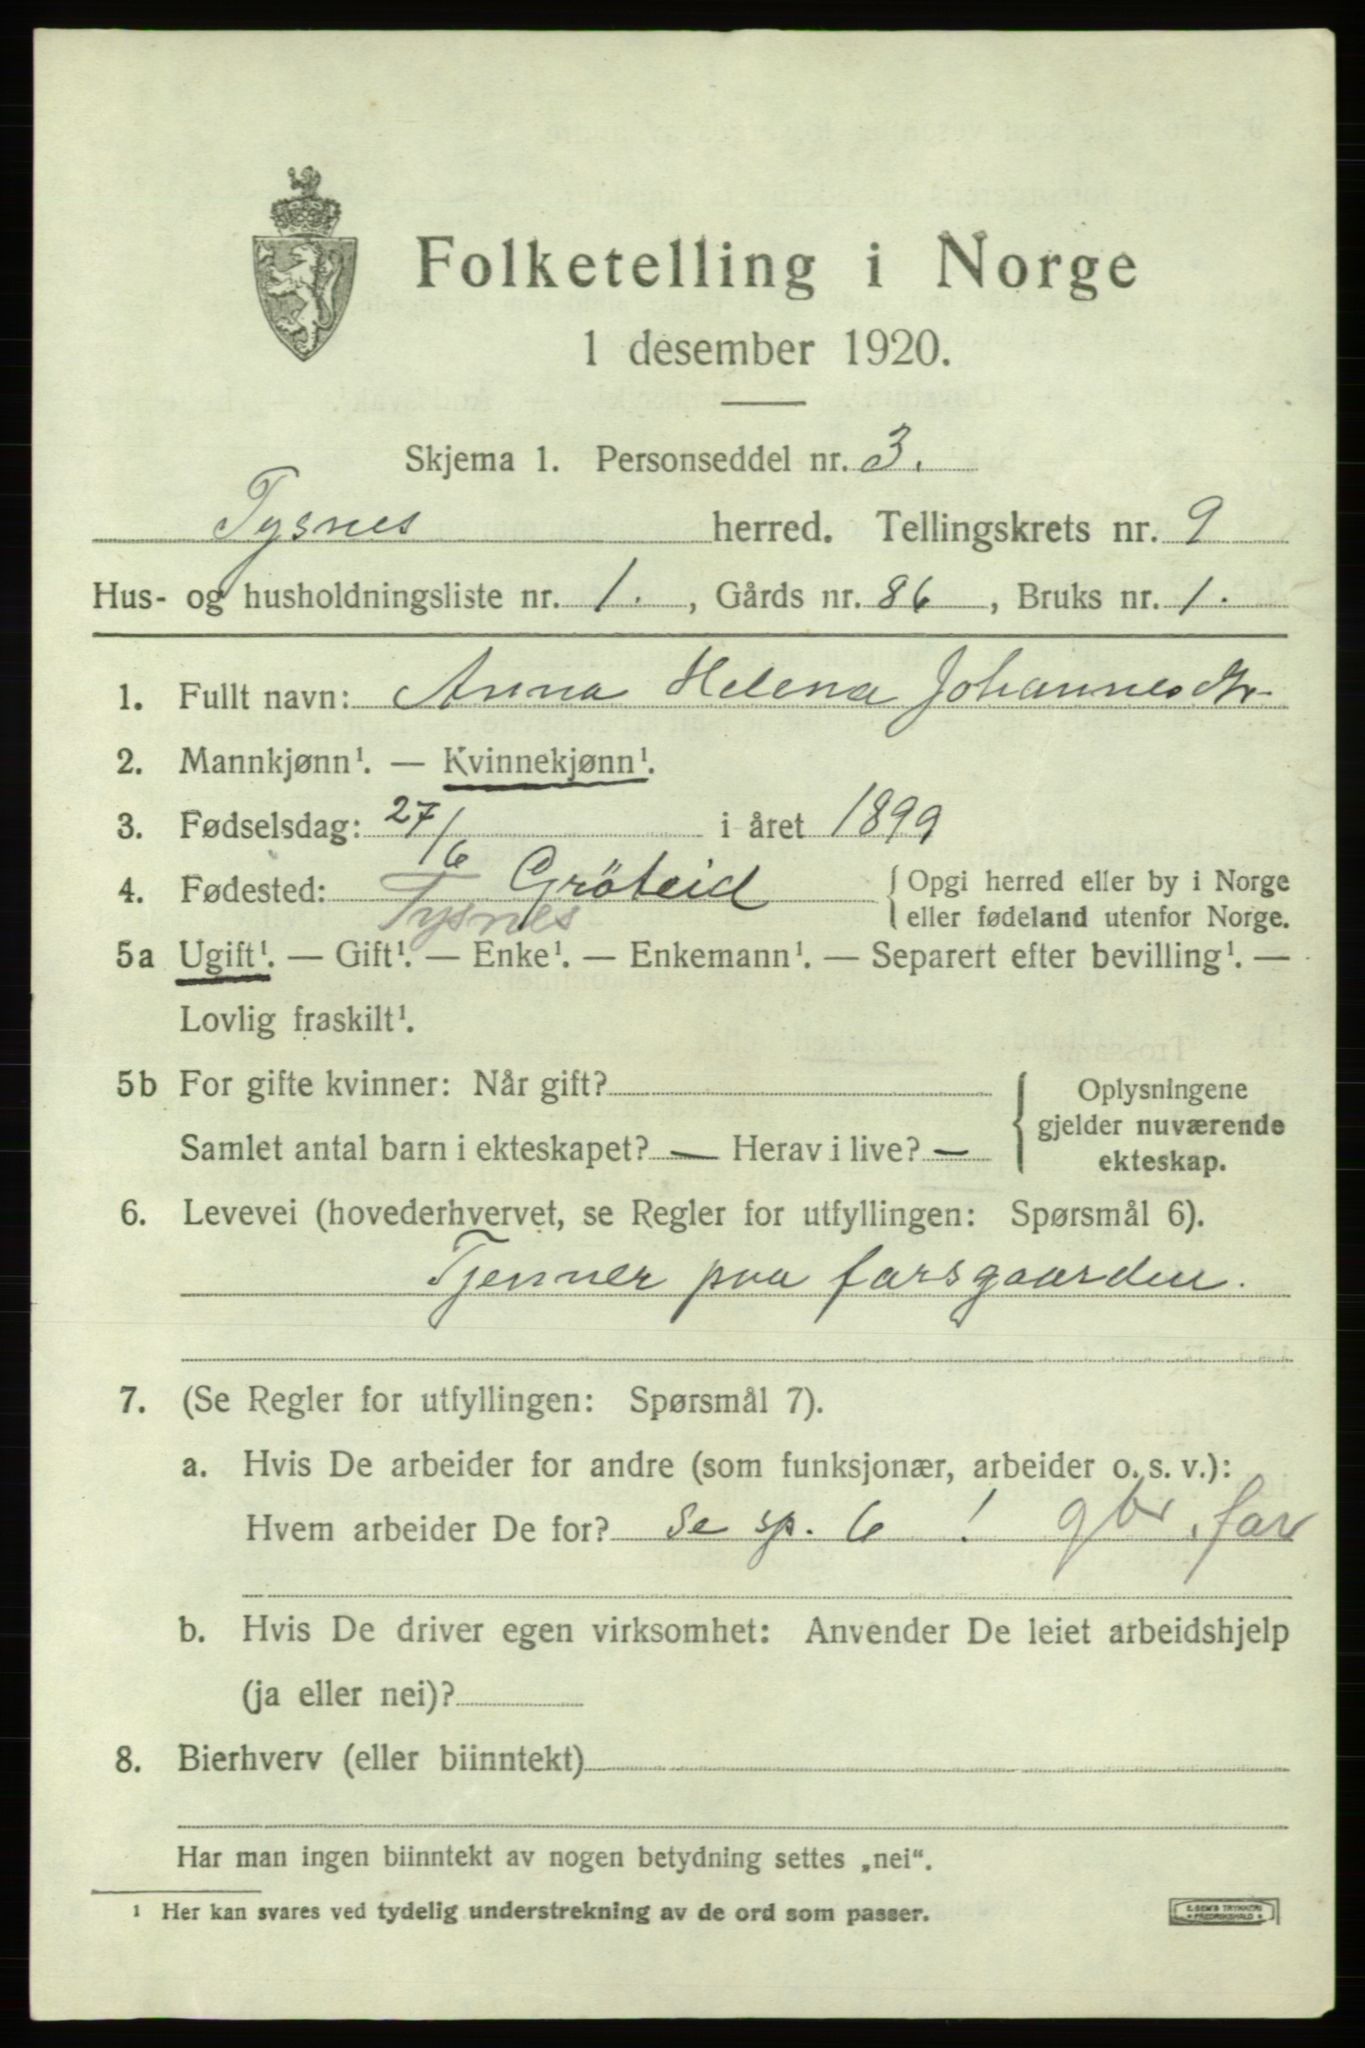 Folketelling i Norge
1 desember 1920.
Skjema 1. Personseddel nr. 3.
Tysnes herred. Tellingskrets nr. 9
Hus- og husholdningsliste nr. 1. , Gårds nr. 86 , Bruks nr. 1.
1. Fullt navn: Anna Helena Johannesdtr
2. Mannkjønn¹. — Kvinnekjønn¹.
3. Fødselsdag: 27/6 i året 1899
4. Fødested: Gröteid { Opgi herred eller by i Norge
Tysnes eller fødeland utenfor Norge.
5a Ugift¹. — Gift¹. — Enke¹. — Enkemann¹. — Separert efter bevilling¹. —
Lovlig fraskilt¹.
5b For gifte kvinner: Når gift? { Oplysningene
gjelder nuværende
Samlet antal barn i ekteskapet? — Herav i live? — ekteskap.
6. Levevei (hovederhvervet, se Regler for utfyllingen: Spørsmål 6).
Tjenner paa farsgaarden.
7. (Se Regler for utfyllingen: Spørsmål 7).
a. Hvis De arbeider for andre (som funksjonær, arbeider o. s. v.):
Hvem arbeider De for? Se sp. 6 ! gbr, far
b. Hvis De driver egen virksomhet: Anvender De leiet arbeidshjelp
(ja eller nei)?
8. Bierhverv (eller biinntekt)
Har man ingen biinntekt av nogen betydning settes „nei“.
¹ Her kan svares ved tydelig understrekning av de ord som passer.
E. SEM'S TRYKKERI
FREDRIKSHALD